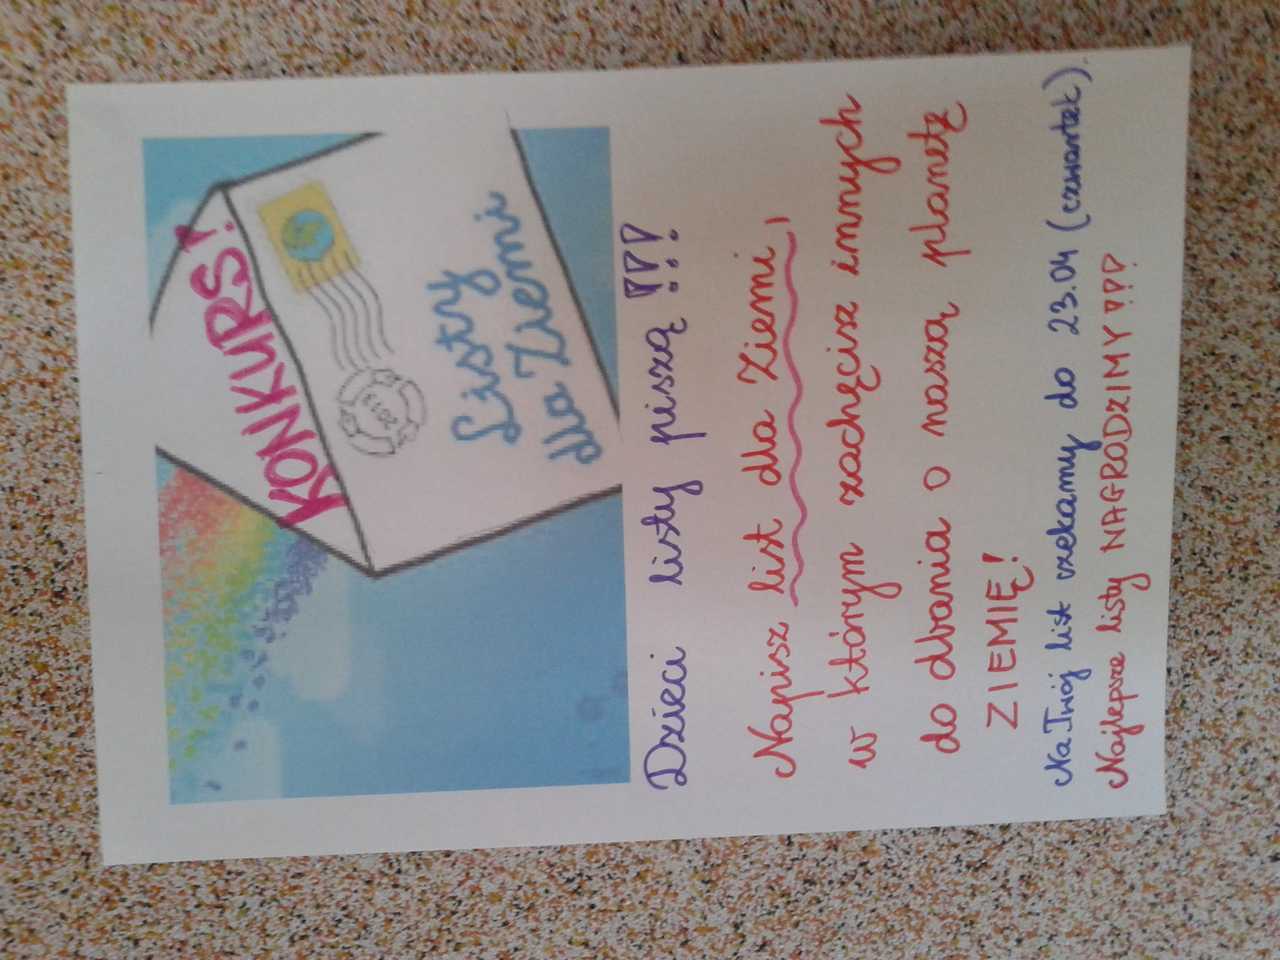 KONKURS!
Listy
dla Ziemi
Dzieci listy piszą!!!
Napisz list dla Ziemi,
w którym zachęcisz innych
do dbania o naszą planetę
ZIEMIĘ!
Na Twój list czekamy do 23.04 (czwartek).
Najlepsze listy NAGRODZIMY!!!